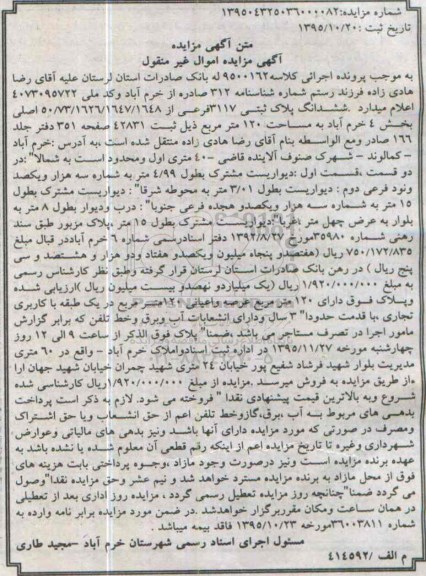 شماره مزایده:۱۳۹۵۰۴۳۲۵۰۳۶۰۰۰۰۸۲
تاریخ ثبت :۱۳۹۵/۱۰/۲۰
متن آگهی مزایده
آگهی مزایده اموال غیر منقول
به موجب پرونده اجرائی کلاسه۹۵۰۰۱۶۲ له بانک صادرات استان لرستان علیه آقای رضا
هادی زاده فرزند رستم شماره شناسنامه ۳۱۲ صادره از خرم آباد وکد ملی ۴۰۷۳۰۹۵۷۲۲
اعلام میدارد .ششدانگ پلاک ثبتی ۳۱۱۷فرعی از ۵۰/۷۳/۱۶۲۶/۱۶۴۷/۱۶۴۸ اصلی
بخش ۴ خرم آباد به مساحت ۱۲۰ متر مربع ذیل ثبت ۴۲۸۳۱ صفحه ۳۵۱ دفتر جلد
۱۶۶ صادر ومع الواسطه بنام آقای رضا هادی زاده منتقل شده است ،به آدرس :خرم آباد
- کمالوند - شهرک صنوف آلاینده قاضی -۴۰ متری اول ومحدود است به شمالا" :در
دو قسمت ،قسمت اول :دیواریست مشترک بطول ۴/۹۹ متر به شماره سه هزار ویکصد
ونود فرعی دوم : دیواریست بطول ۳/۰۱ متر به محوطه شرقا" : دیواریست مشترک بطول
۱۵ متر به شماره سه هزار ویکصدو هجده فرعی جنوبا" : درب ودیوار بطول ۸ متر به
بلوار به عرض چهل متر ،غربا: دیواریست مشترک بطول ۱۵ متر ،پلاک مزبور طبق سند
رهنی شماره ۳۵۹۸۰مورخ ۱۳۹۲/۸/۷ دفتر اسنادرسمی شماره ۶ خرم آباددر قبال مبلغ
۷۵۰/۱۷۲/۸۳۵ ریال (هفتصدو پنجاه میلیون ویکصدو هفتاد ودو هزار و هشتصد و سی
پنج ریال ) در رهن بانک صادرات استان لرستان قرار گرفته وطبق نظر کارشناس رسمی
به مبلغ ۱/۹۲۰/۰۰۰/۰۰۰ ریال (یک میلیاردو نهصدو بیست میلیون ریال )ارزیابی شده
وپلاک فوق دارای ۱۲۰ متر مربع عرصه واعیانی ۱۲۰متر مربع در یک طبقه با کاربری
تجاری ،با قدمت حدودا" ۳ سال ودارای انشعابات آب وبرق وخط تلفن که برابر گزارش
مامور اجرا در تصرف مستاجر می باشد ،ضمنا" پلاک فوق الذکر از ساعت ۹ الی ۱۲ روز
چهارشنبه مورخه ۱۳۹۵/۱۱/۲۷ در اداره ثبت اسنادواملاک خرم آباد - واقع در ۶۰ متری
مدیریت بلوار شهید فرشاد شفیع پور خیابان ۲۴ متری شهید چمران خیابان شهید جهان آرا
،از طریق مزایده به فروش میرسد .مزایده از مبلغ ۱/۹۲۰/۰۰۰/۰۰۰ریال کارشناسی شده
شروع وبه بالاترین قیمت پیشنهادی نقدا " فروخته می شود. لازم به ذکر است پرداخت
بدهی های مربوط به آب ،برق،گازوخط تلفن اعم از حق انشعاب ویا حق اشتراک
ومصرف در صورتی که مورد مزایده دارای آنها باشد ونیز بدهی های مالیاتی وعوارض
شهرداری وغیره تا تاریخ مزایده اعم از اینکه رقم قطعی آن معلوم شده یا نشده باشد به
عهده برنده مزایده است ونیز درصورت وجود مازاد ،وجوه پرداختی بابت هزینه های
فوق از محل مازاد به برنده مزایده مسترد خواهد شد و نیم عشر وحق مزایده نقدا"وصول
می گردد ضمنا"چنانچه روز مزایده تعطیل رسمی گردد ، مزایده روز اداری بعد از تعطیلی
در همان ساعت ومکان مقرربرگزار خواهدشد .در ضمن مورد مزایده برابر نامه وارده به
شماره ۳۶۰۰۳۸۱۱مورخه ۱۳۹۵/۱۰/۲۳ فاقد بیمه میباشد .
مسئول اجرای اسناد رسمی شهرستان خرم آباد -مجید طاری
م الف /۴۱۴۵۹۲